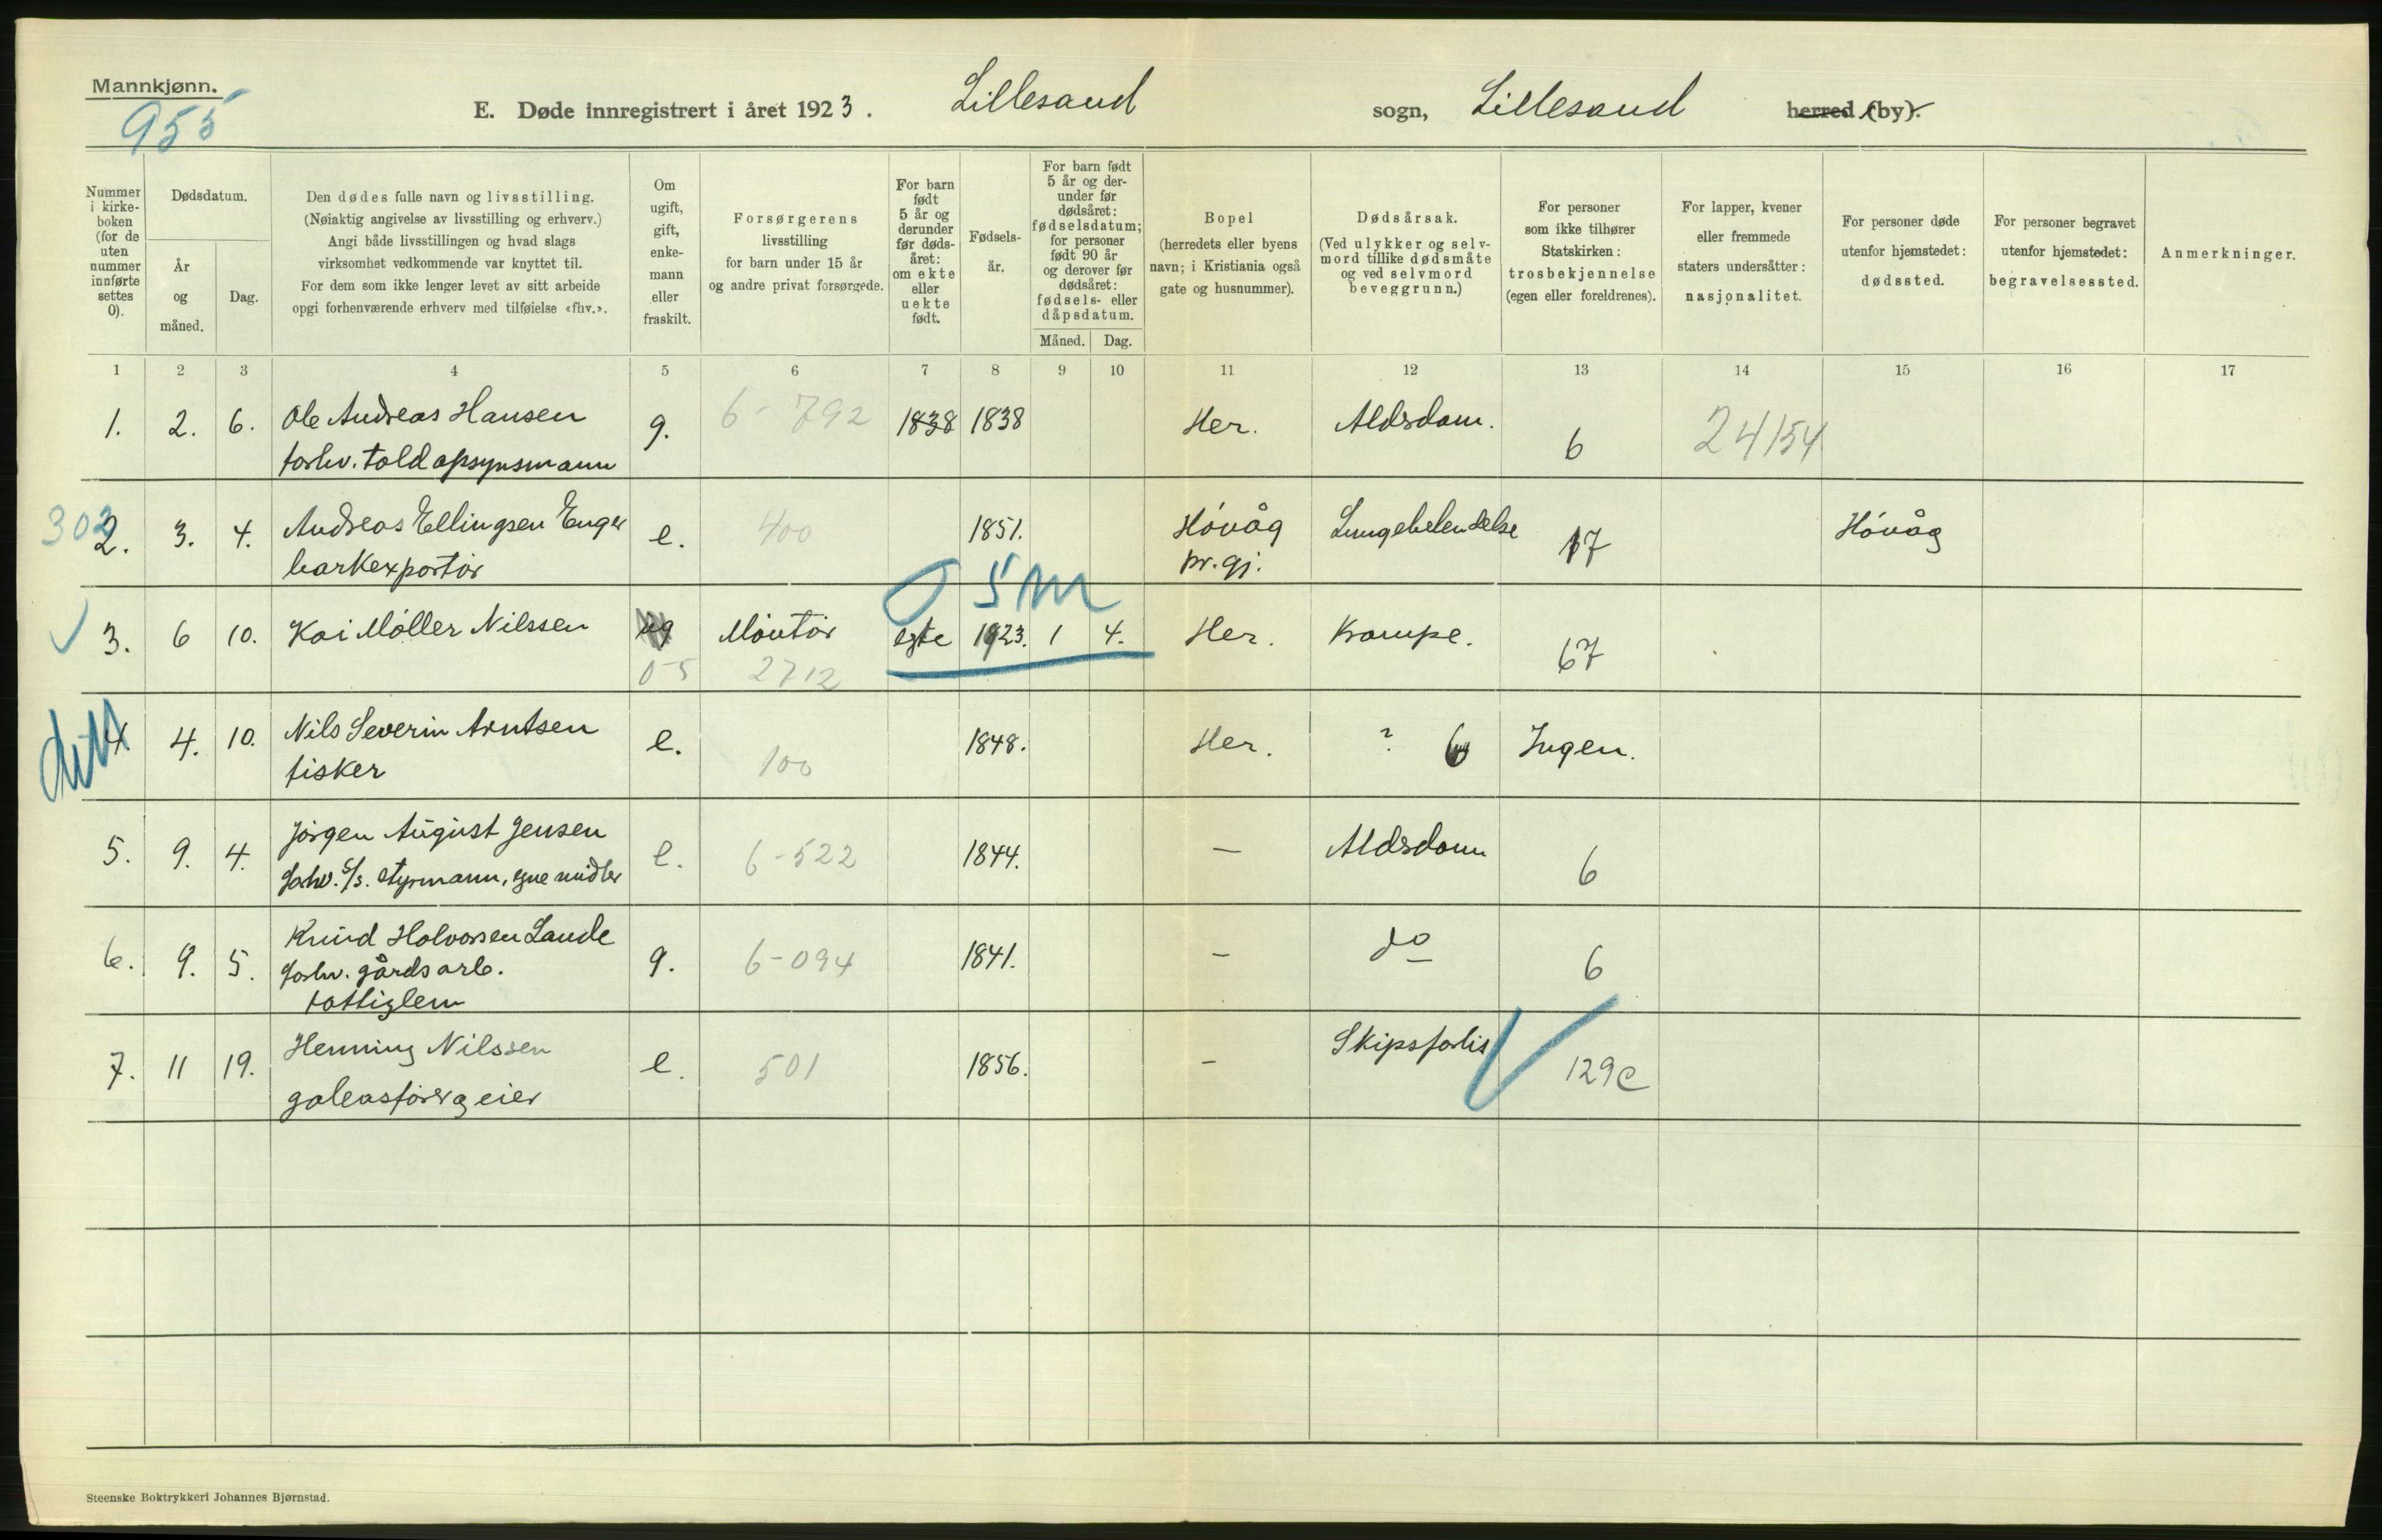 Mannkjønn.
955
E. Døde innregistrert i året 1923.
Lillesand sogn, Lillesand herred (by).
Nummer i kirke-boken (for de uten nummer innførte settes 0).
Dødsdatum.
År og måned.
Dag.
Den dødes fulle navn og livsstilling.
(Nøiaktig angivelse av livsstilling og erhverv.)
Angi både livsstillingen og hvad slags
virksomhet vedkommende var knyttet til.
For dem som ikke lenger levet av sitt arbeide
opgi forhenværende erhverv med tilføielse «fhv.».
Om ugift, gift, enke-mann eller fraskilt.
Forsørgerens
livsstilling
for barn under 15 år
og andre privat forsørgede.
For barn født 5 år og derunder før døds-året: om ekte eller uekte født.
Fødsels-år.
For barn født 5 år og der-under før dødsåret: fødselsdatum; for personer født 90 år og derover før dødsåret: fødsels- eller dåpsdatum.
Måned. Dag.
Bopel
(herredets eller byens
navn; i Kristiania også
gate og husnummer).
Dødsårsak.
(Ved ulykker og selv-
mord tillike dødsmåte
og ved selvmord
beveggrunn.)
For personer
som ikke tilhører
Statskirken:
trosbekjennelse
(egen eller foreldrenes).
For lapper, kvener
eller fremmede
staters undersåtter:
nasjonalitet.
For personer døde
utenfor hjemstedet:
dødssted.
For personer begravet
utenfor hjemstedet:
begravelsessted.
Anmerkninger.
1 2 3 4 5 6 7 8 9 10 11 12 13 14 15 16 17
1. 2. 6. Ole Andreas Hansen g. 6-792 1838 1838 Her. Aldsdom. 6 24154
forhv. toldopsynsmann
302
2. 3. 4. Andreas Ellingsen Enger e. 400 1851. Høvåg Lungebetendelse 17 Høvåg
barkexportør pr. gj.
5 M
3. 6 10. Kai Møller Nilssen ug Montør egte 1923. 1 4. Her. Krampe. 67
05 2712
4 4. 10. Nils Severin Arntsen e. 100 1848. Her. ? 6 Ingen.
fisker
5. 9. 4. Jørgen August Jensen e. 6-522 1844. — Aldsdom 6
forhv. S/s. styrmann, egne midler
6. 9. 5. Knud Halvorsen Lande g. 6-094 1841. – do 6
forhv. gårdsarb.
fattiglem
7. 11 19. Henning Nilssen e. 501 1856. – Skipsforlis 129c
galeasfører og eier
Steenske Boktrykkeri Johannes Bjørnstad.